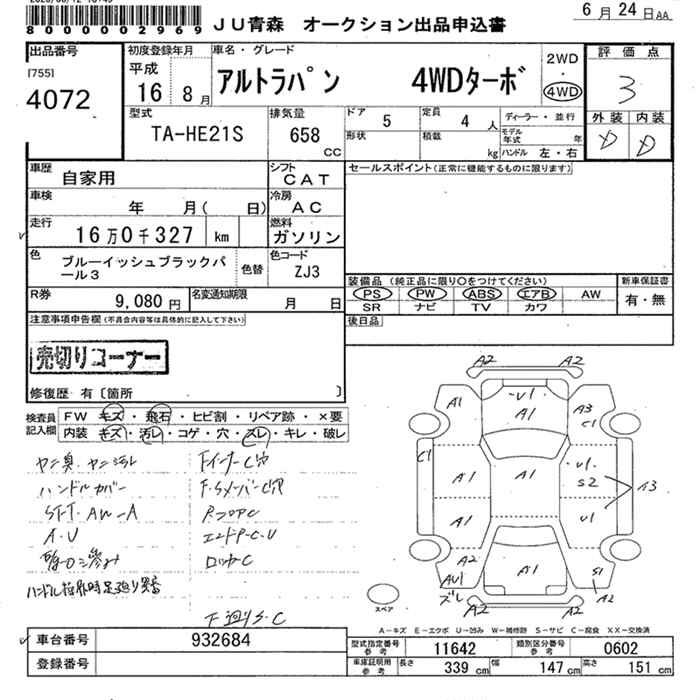 8000002969
JU青森 オークション出品申込書
6月24日AA
出品番号
[755]
4072
初度登録年月
平成
16 8月
車名・グレード
アルトラパン 4WDターボ
2WD
・
4WD
評価点
3
外装 内装
D D
型式
TA-HE21S
排気量
658
CC
ドア 5
定員 4 人
形状
積載 kg
ディーラー・並行
モデル年式 年
ハンドル 左・右
車歴
自家用
シフト
CAT
セールスポイント(正常に機能するものに限ります)
車検
年 月( 日)
冷房
AC
走行
16万0千327 km
燃料
ガソリン
色
ブルーイッシュブラックパール3
色替
色コード
ZJ3
装備品(純正品に限り○をつけてください)
PS PW ABS エアB AW
SR ナビ TV カワ
新車保証書
有・無
R券
9,080円
名変通知期限
月 日
後日品
注意事項申告欄(不具合内容等は具体的に記入して下さい)
売切りコーナー
修復歴 有〔箇所 〕
検査員記入欄
FW キズ・飛石・ヒビ割・リペア跡・×要
内装 キズ・汚レ・コゲ・穴・スレ・キレ・破レ
ヤニ臭.ヤニ汚レ
ハンドルカバー
A.U
Fインナー C穴
F.Sメンバー C穴
ロッカー C
F廻りS.C
A2 A2
A1 U1 A3
A1 C1
C1 A1 A1 U1 S2 A3
A1 U1
A2 A1 S1
AU1 ズレ A2 A2 A2
スペア
A-キズ E-エクボ U-凹み W-補修跡 S-サビ C-腐食 XX-交換済
車台番号
932684
登録番号
型式指定番号 参考 11642
類別区分番号 参考 0602
車庫証明用 参考 長さ 339cm 幅 147cm 高さ 151cm